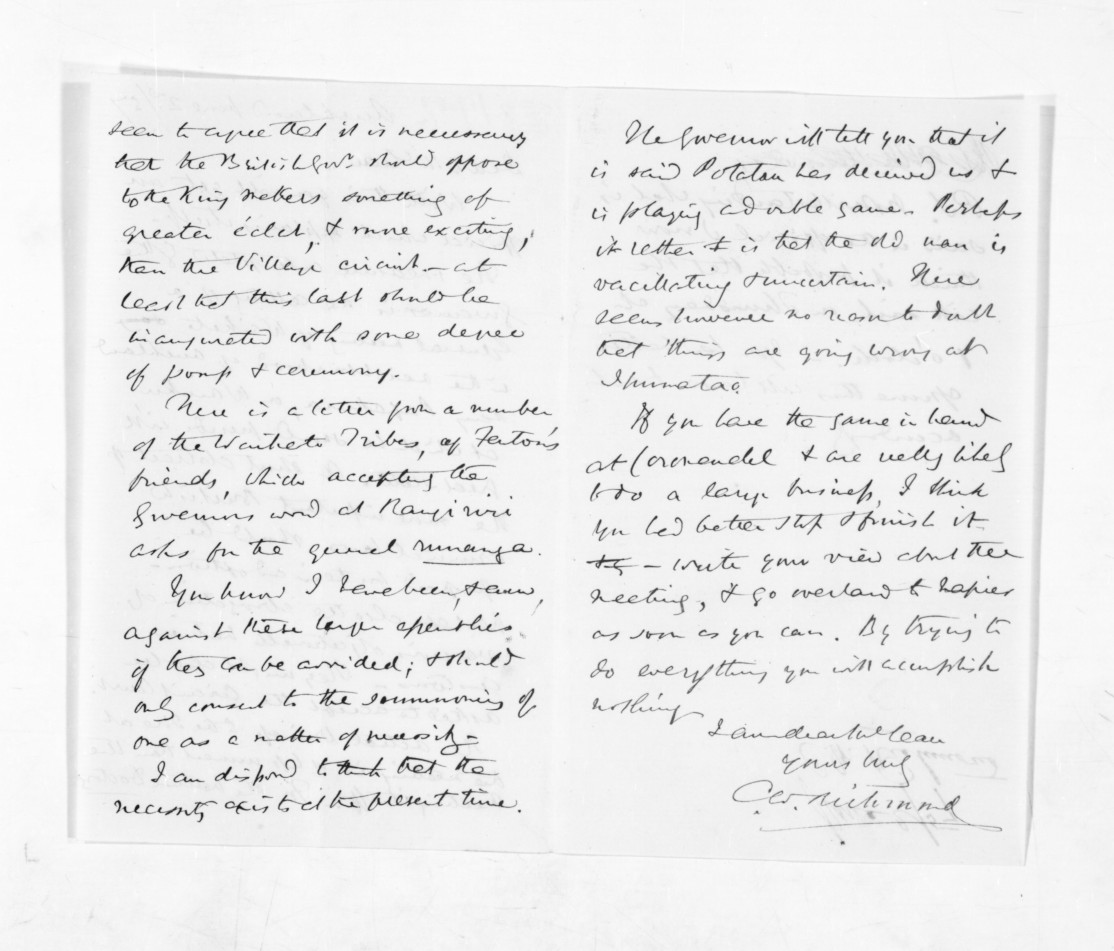 seem to agree that it is necessary
that the British Govt. should oppose
to the King makers something of
greater éclat, & more exciting,
than the Village circuit - at
least that this last should be
inaugurated with some degree
of pomp & ceremony.
Here is a letter from a number
of the Waikato Tribes, of Fenton's
friends, which accepting the
Governor's word at Rangiriri
asks for the general runanga.
You know I have been, & am,
against these large assemblies
if they can be avoided; & should
only consent to the summoning of
one as a matter of necessity -
I am disposed to think that the
necessity exists at the present time.
The Governor will tell you that it
is said Potatau has deceived us &
is playing a double game. Perhaps
it rather is that the old man is
vacillating & uncertain. There
seems however no reason to doubt
that things are going wrong at
Ihumatao.
If you have the game in hand
at Coromandel & are really likely
to do a large business, I think
you had better stop & finish it
- write your view about the
meeting, & go overland to Napier
as soon as you can. By trying to
do everything you will accomplish
nothing
I am dear McLean
Yours truly
C W. Richmond